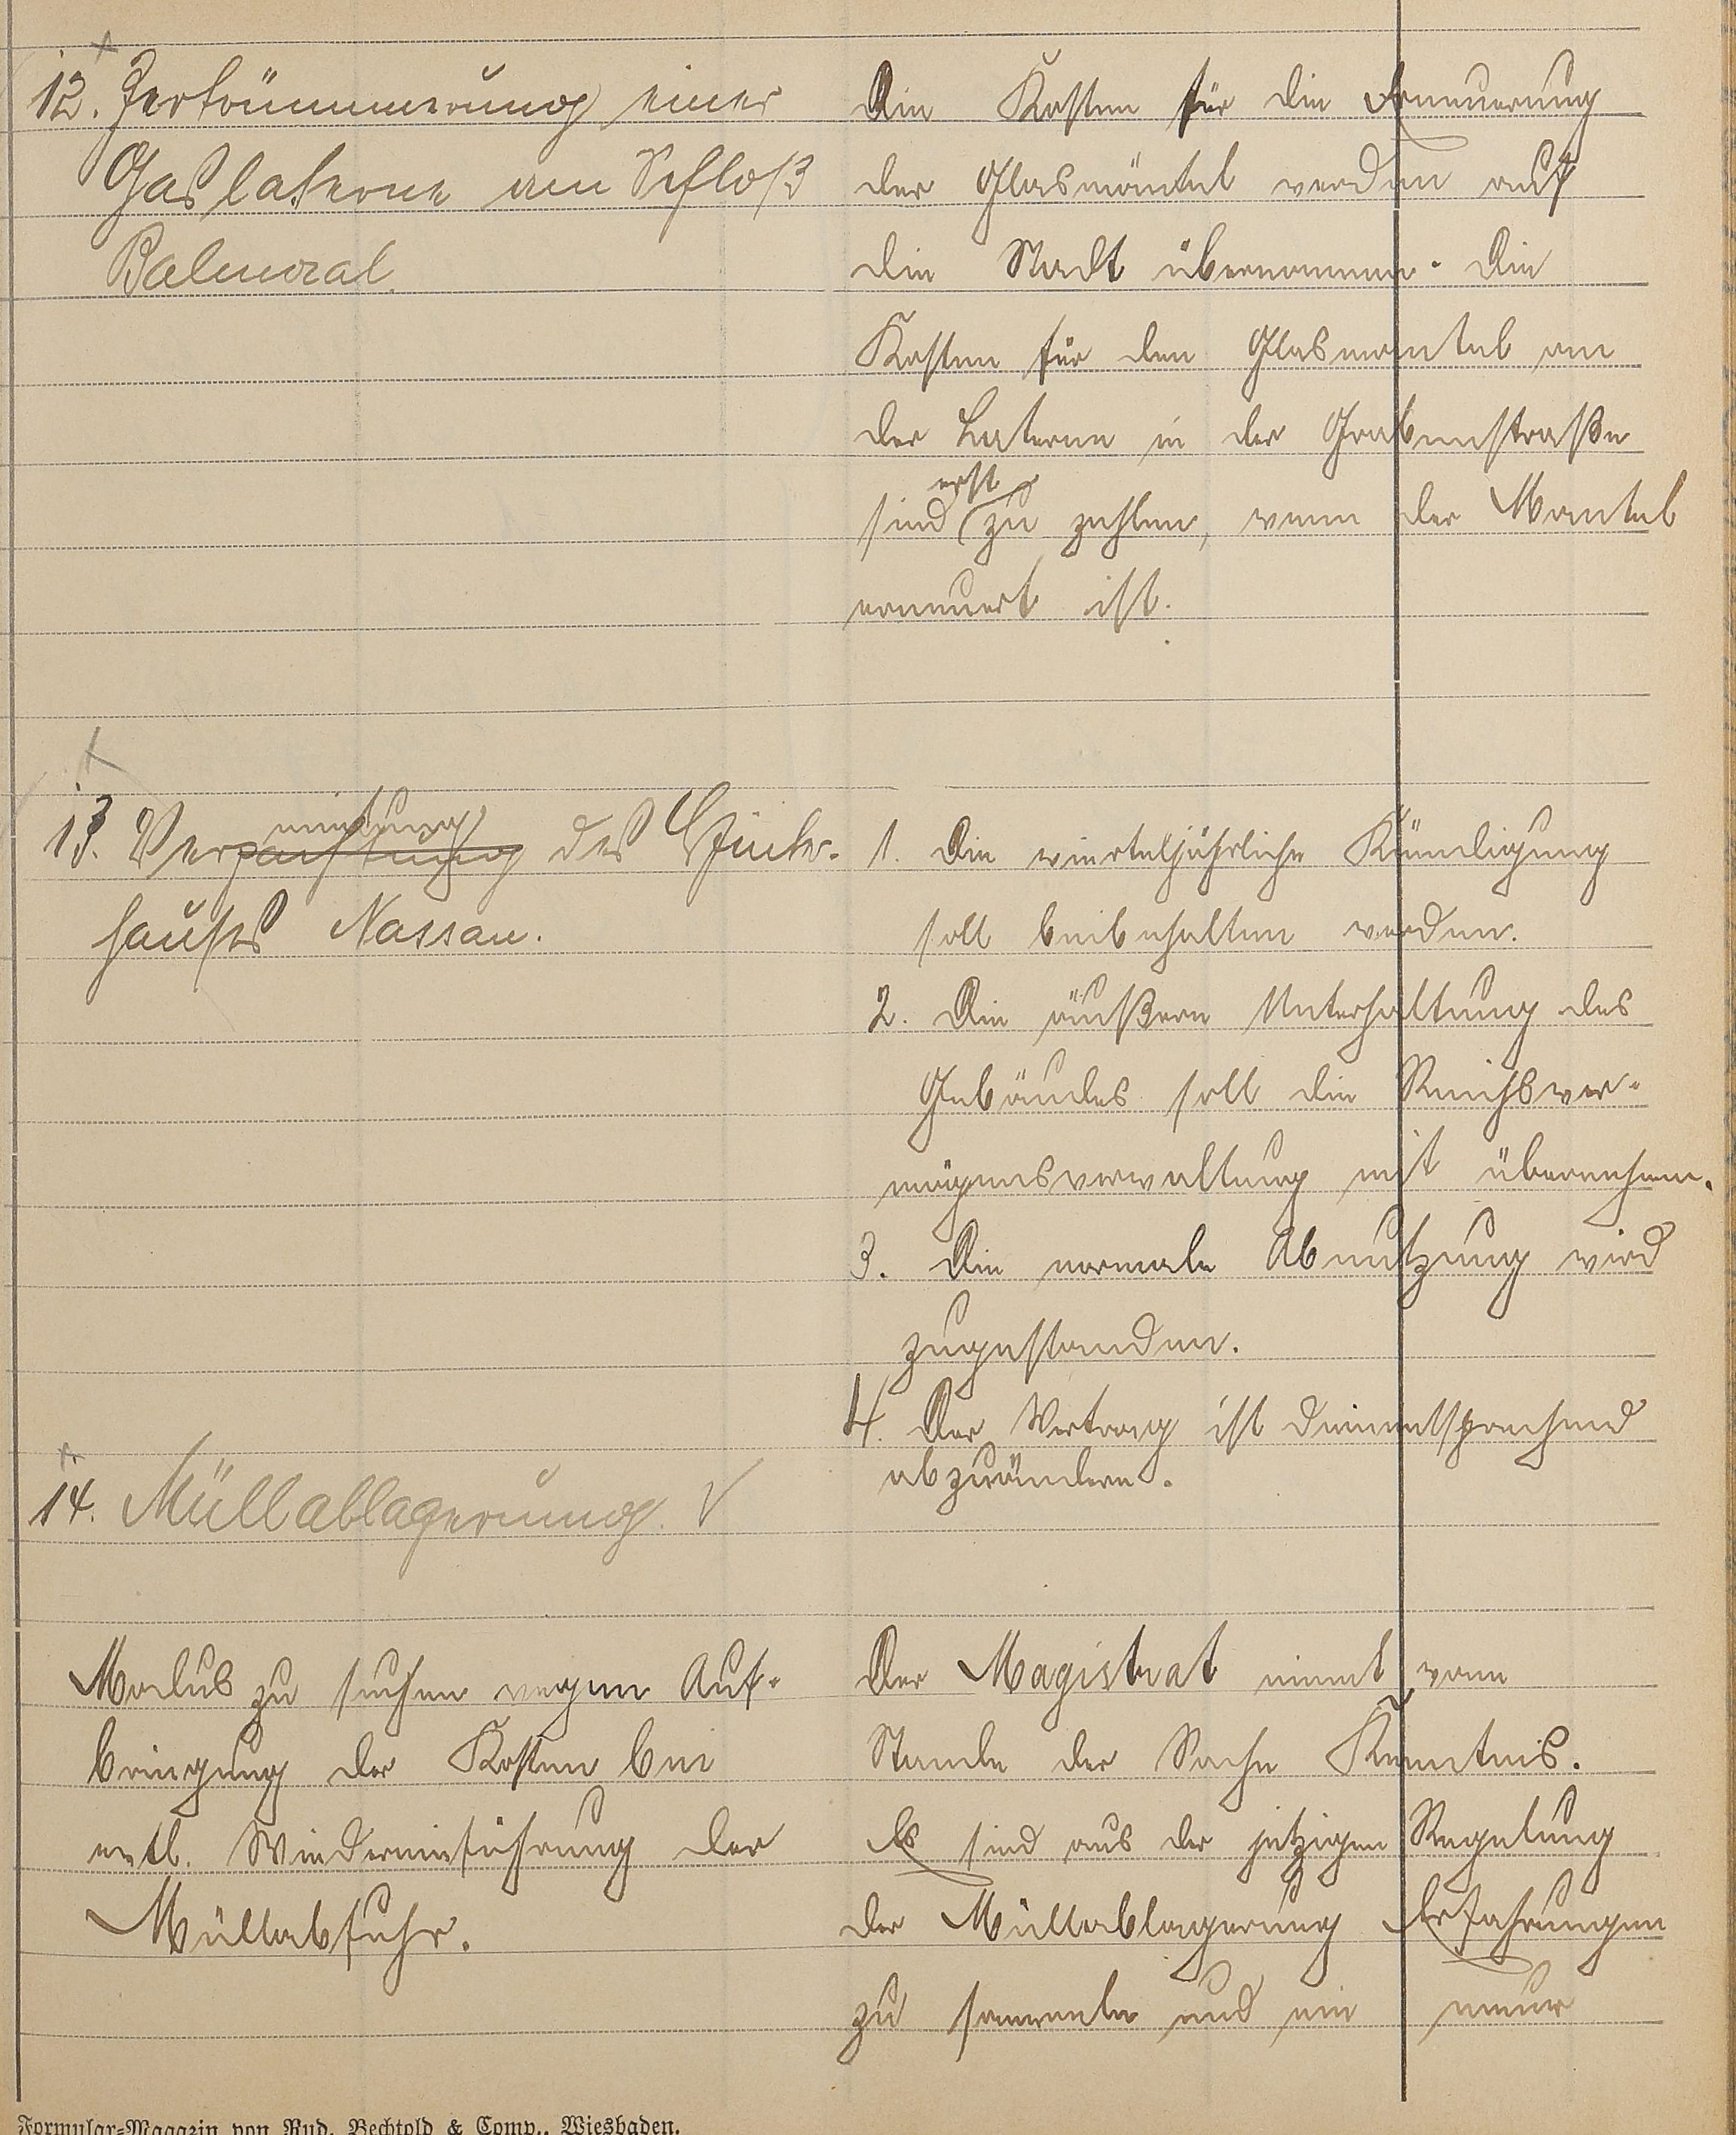 12. Zertrümmerung einer
Gaslaterne am Schloß
Balmoral.
Die Kosten für die Erneuerung
der Glasmäntel werden auf
die Stadt übernommen. Die
Kosten für den Glasmantel an
der Laterne in der Grabenstraße
erst
sind zu zahlen, wenn der Mantel
erneuert ist.
13. Verpachtung des
mietung
hauses Nassau.
1. Die vierteljährliche Kündigung
soll beibehalten werden.
2. Die äußere Unterhaltung des
Gebäudes soll die Reichsver-
mögensverwaltung mit übernehmen.
3. Die normale Abnutzung wird
zugestanden.
4. Der Vertrag ist dementsprechend
abzuändern.
14. Müllablagerung.
Modus zu suchen wegen Auf-
bringung der Kosten bei
evtl. Wiedereinführung der
Müllabfuhr.
Der Magistrat nimmt vom
Stande der Sache Kenntnis.
Es sind aus der jetzigen Regelung
der Müllablagerung Erfahrungen
zu sammeln und ein neuer
Formular-Magazin von Rud. Bechtold & Comp., Wiesbaden.